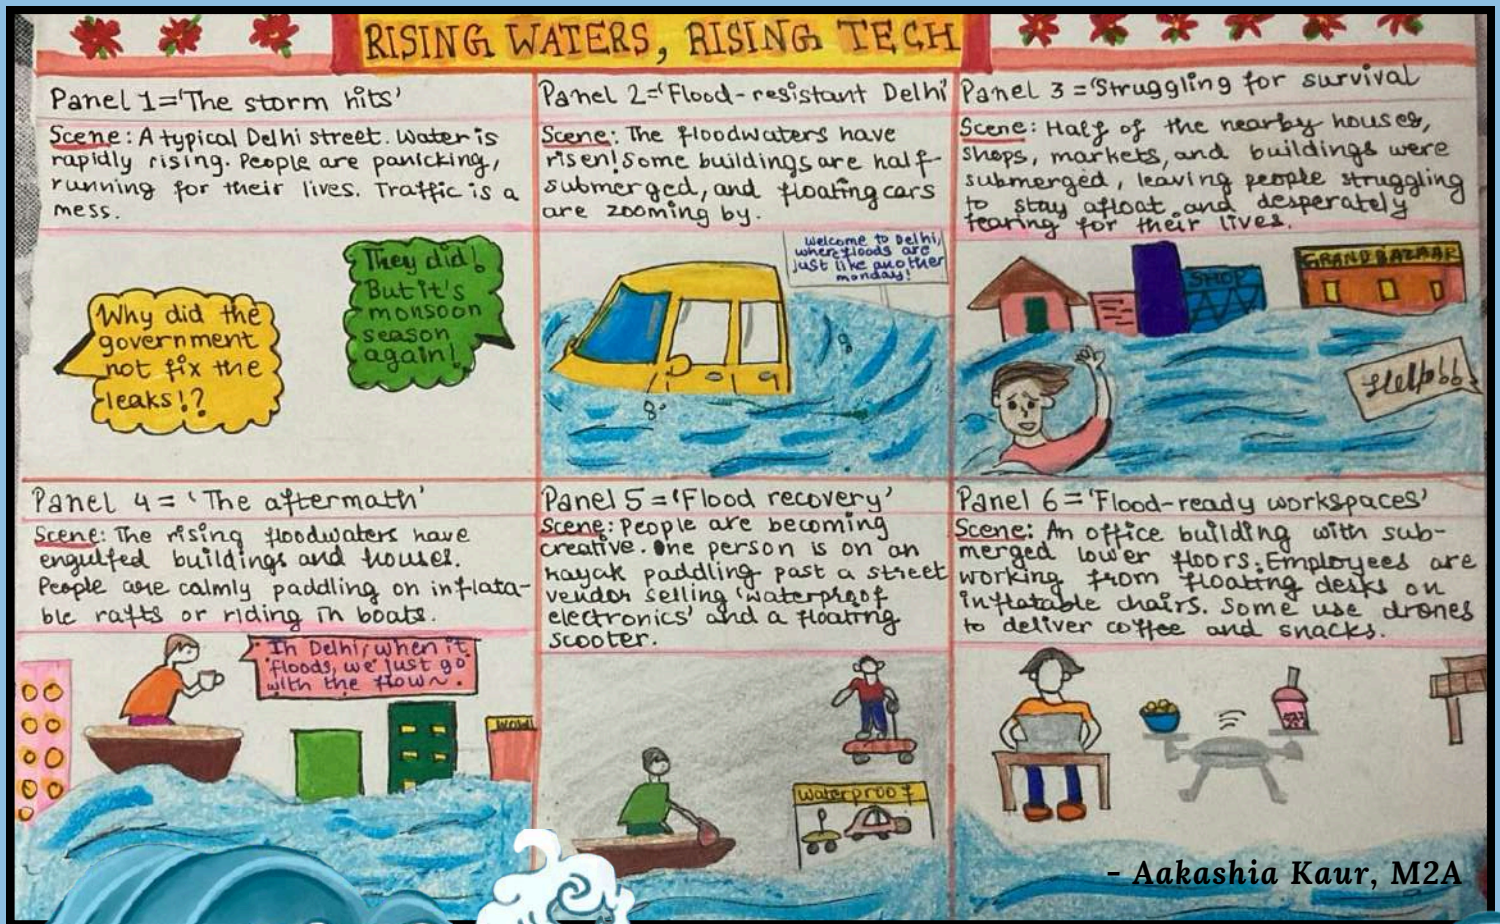 RISING WATERS, RISING TECH
Panel 1='The storm hits'
Scene: A typical Delhi street. Water is
rapidly rising. People are panicking,
running for their lives. Traffic is a
mess.
Why did the
government
not fix the
leaks!?
They did!
But it's
monsoon
season
again!
Panel 2='Flood-resistant Delhi'
Scene: The floodwaters have
risen! Some buildings are half-
submerged, and floating cars
are zooming by.
Welcome to Delhi,
where floods are
just like another
monday!
Panel 3='Struggling for survival
Scene: Half of the nearby houses,
shops, markets, and buildings were
submerged, leaving people struggling
to stay afloat and desperately
fearing for their lives.
SHOP
GRAND BAZAAR
Help
Panel 4= 'The aftermath'
Scene: The rising floodwaters have
engulfed buildings and houses.
People are calmly paddling on inflata-
ble rafts or riding in boats.
In Delhi, when it
floods, we just go
with the flow~.
Panel 5='Flood recovery'
Scene: People are becoming
creative. One person is on an
kayak paddling past a street
vendor selling 'waterproof
electronics' and a floating
scooter.
Waterproof
Panel 6='Flood-ready workspaces'
Scene: An office building with sub-
merged lower floors. Employees are
working from floating desks on
inflatable chairs. Some use drones
to deliver coffee and snacks.
- Aakashia Kaur, M2A